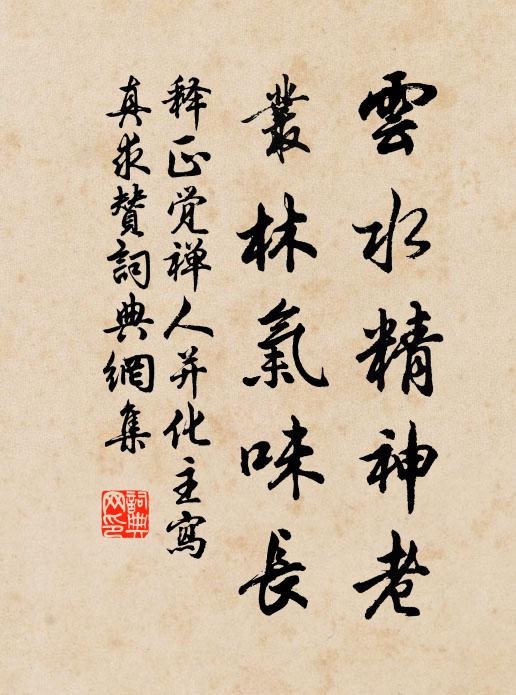 雲水精神老
叢林氣味長
释正觉禅人并化主寫
真求贊詞典網集
詞典网印